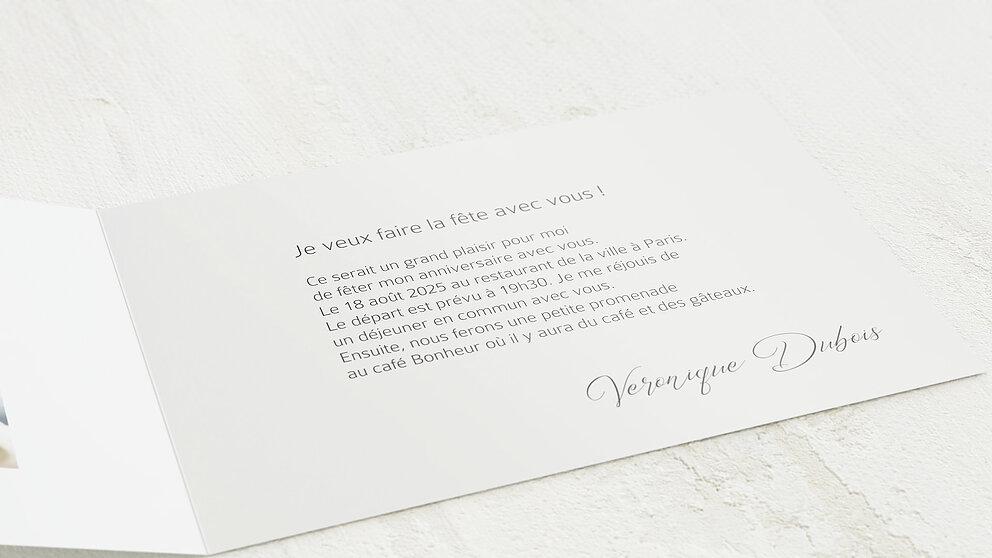 Je veux faire la fête avec vous !
Ce serait un grand plaisir pour moi
de fêter mon anniversaire avec vous.
Le 18 août 2025 au restaurant de la ville à Paris.
Le départ est prévu à 19h30. Je me réjouis de
un déjeuner en commun avec vous.
Ensuite, nous ferons une petite promenade
au café Bonheur où il y aura du café et des gâteaux.
Veronique Dubois